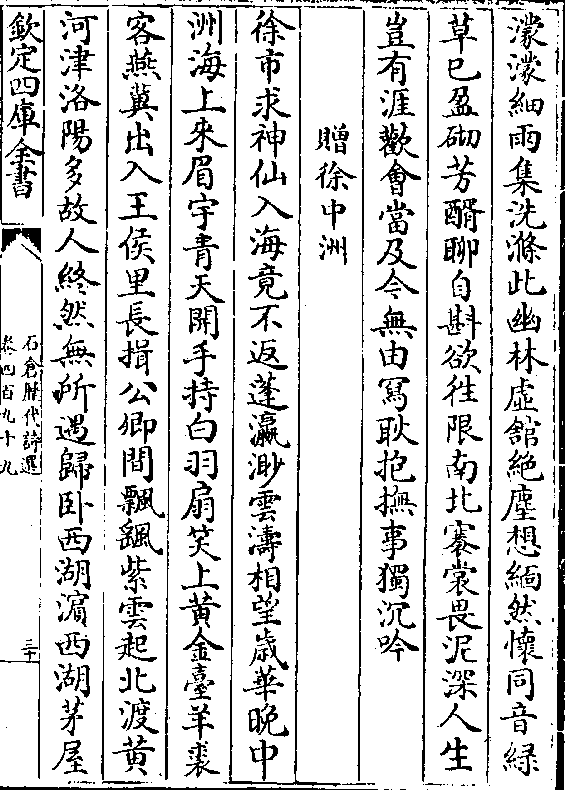 濛濛細雨集洗滌此幽林虛舘絶塵想緬然懷同音緑
草已盈砌芳醑聊自斟欲徃限南北褰裳畏泥深人生
豈有涯歡會當及今無由寫耿抱撫事獨沉吟
贈徐中洲
徐市求神仙入海竟不返蓬瀛渺雲濤相望歳華晩中
洲海上來眉宇青天開手持白羽扇笑上黄金臺羊裘
客燕冀出入王侯里長揖公卿間飄飖紫雲起北渡黄
河津洛陽多故人終然無所遇歸卧西湖濵西湖茅屋
欽定四庫全書
石倉歴代詩選
卷四百九十九
三十